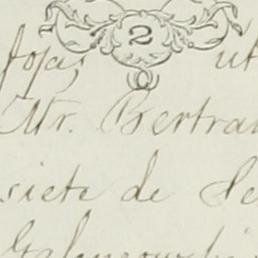 2
fojas út
Mr. Bertran
siete de Se